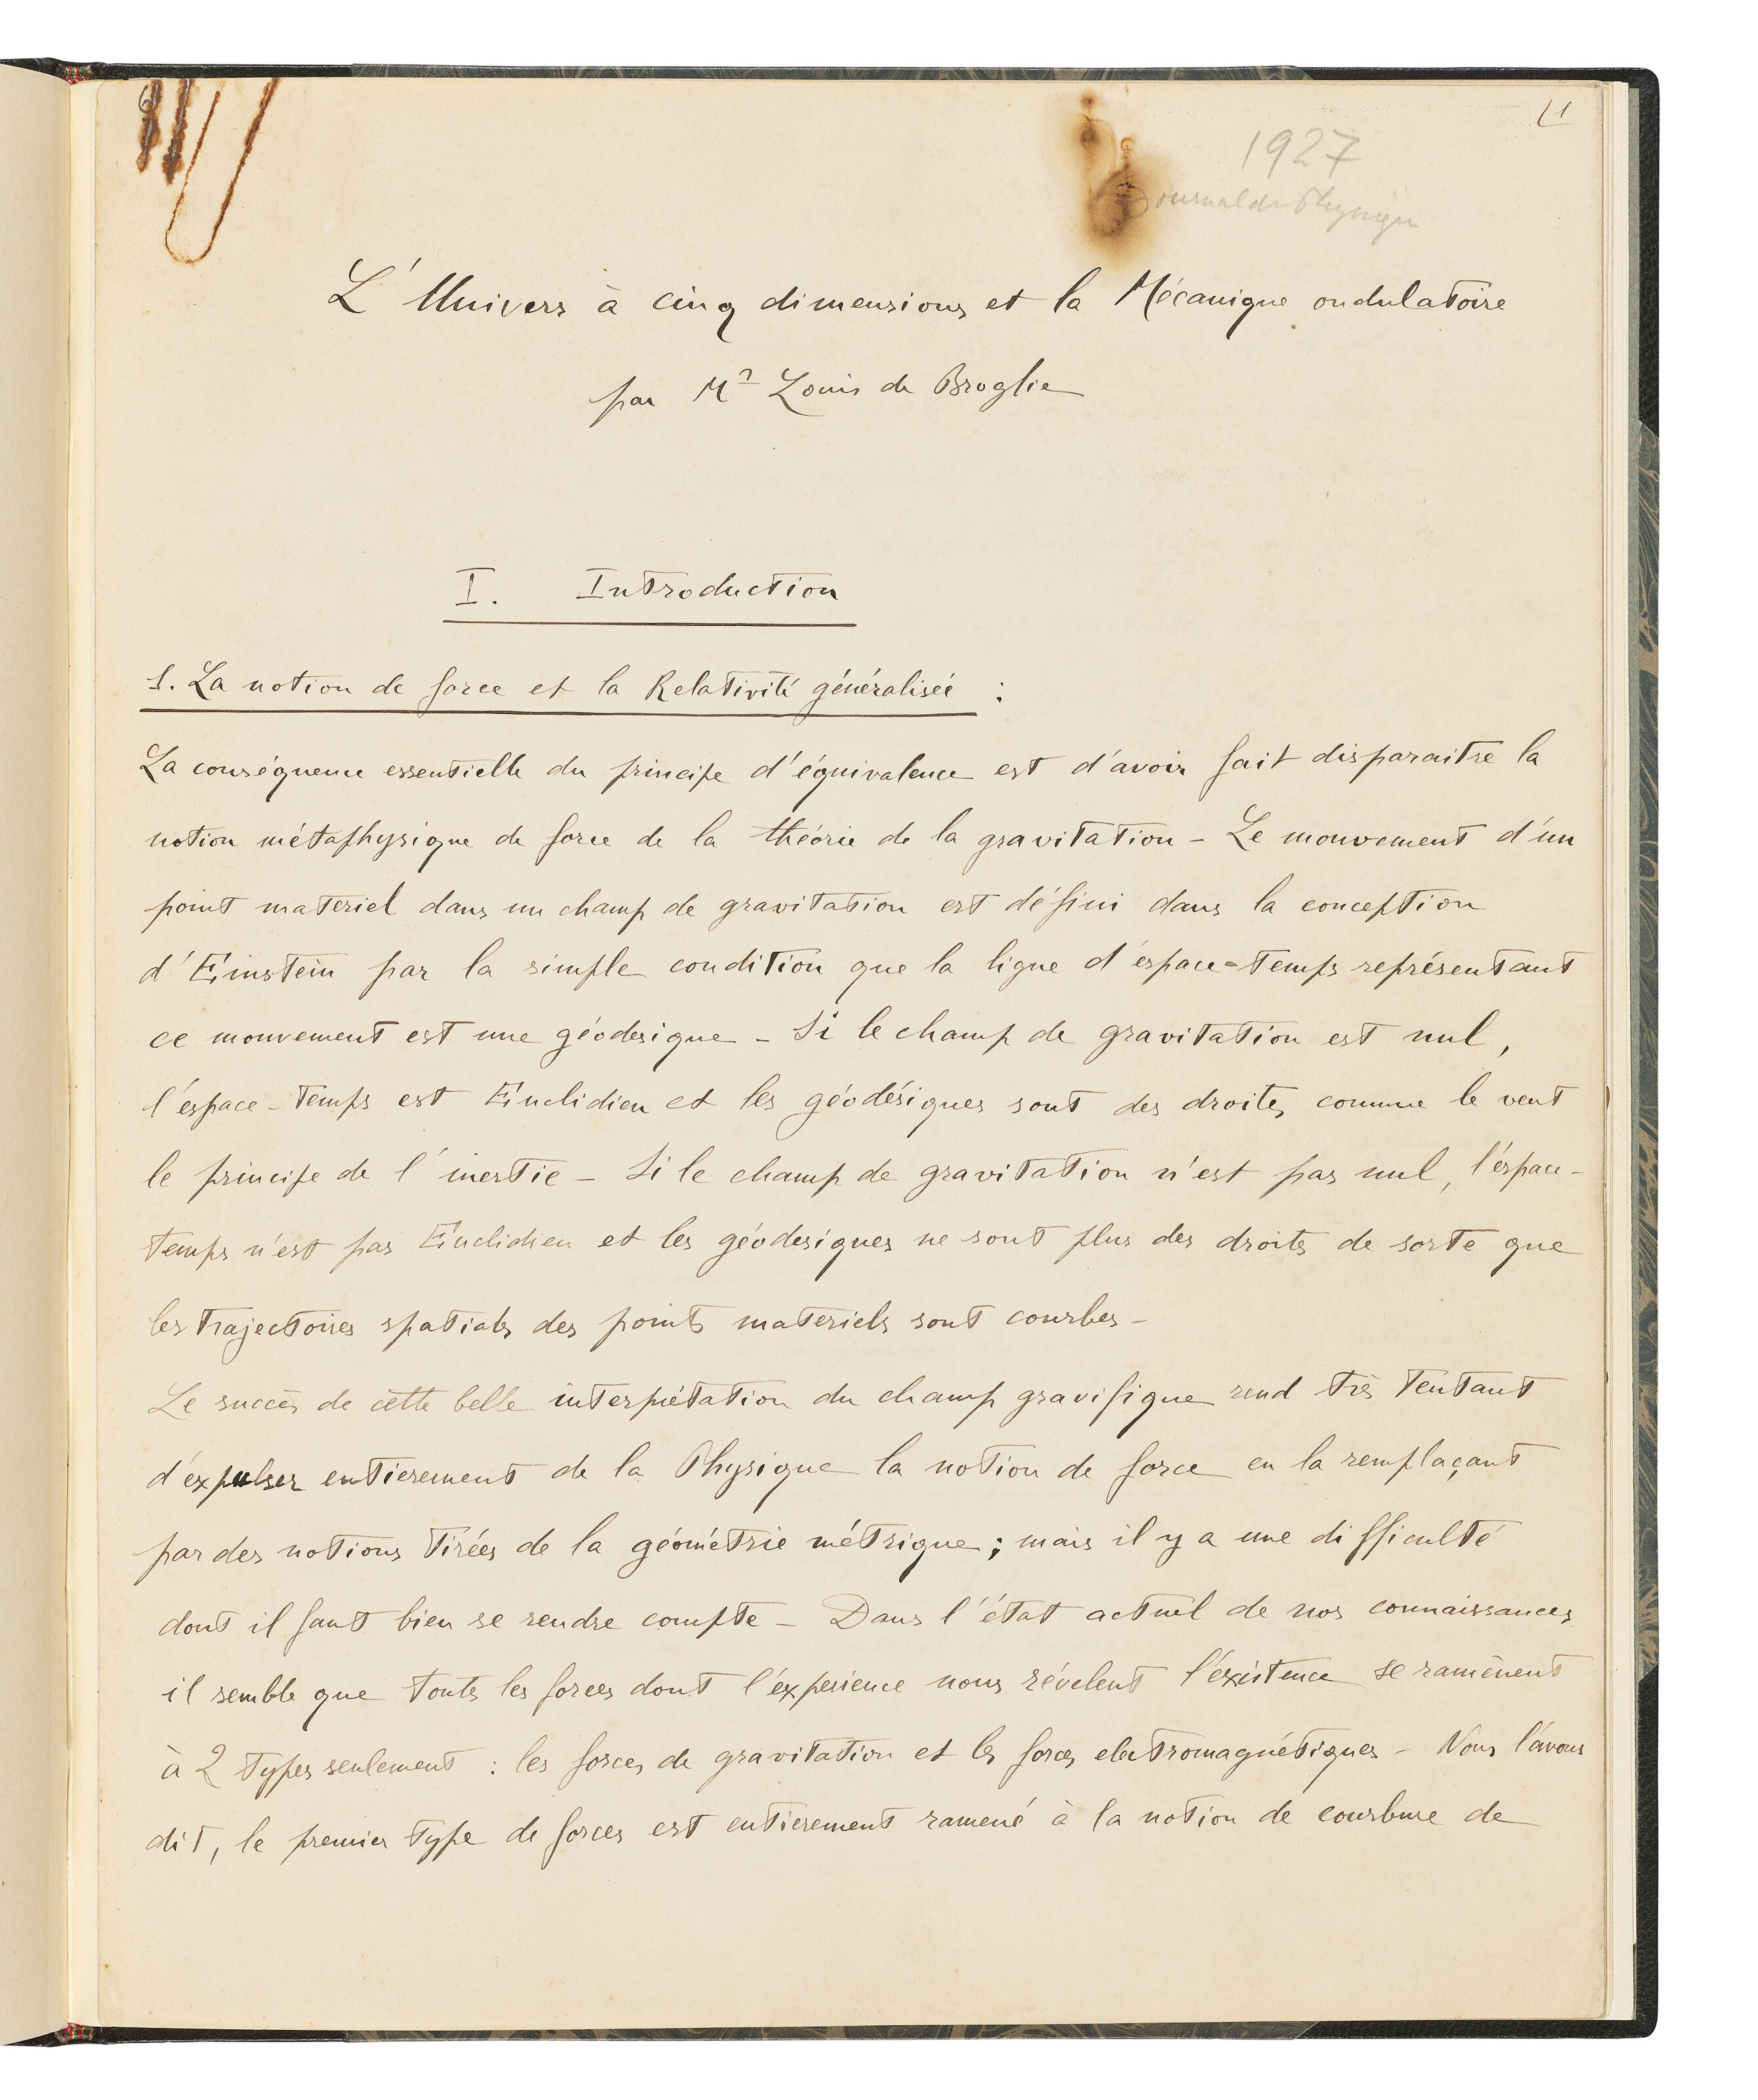 1
1927
Journal de Physique
L'Univers à cinq dimensions et la Mécanique ondulatoire
par Mr Louis de Broglie
I. Introduction
1. La notion de force et la Relativité généralisée :
La conséquence essentielle du principe d'équivalence est d'avoir fait disparaitre la
notion métaphysique de force de la théorie de la gravitation - Le mouvement d'un
point materiel dans un champ de gravitation est défini dans la conception
d'Einstein par la simple condition que la ligne d'espace-temps représentant
ce mouvement est une géodesique - Si le champ de gravitation est nul,
l'espace-temps est Euclidien et les géodésiques sont des droites comme le veut
le principe de l'inertie - Si le champ de gravitation n'est pas nul, l'espace-
temps n'est pas Euclidien et les géodesiques ne sont plus des droites de sorte que
les trajectoires spatiales des points materiels sont courbes -
Le succès de cette belle interprétation du champ gravifique rend très tentant
d'expulser entierement de la Physique la notion de force en la remplaçant
par des notions tirées de la géométrie métrique ; mais il y a une difficulté
dont il faut bien se rendre compte - Dans l'état actuel de nos connaissances,
il semble que toutes les forces dont l'expérience nous révèlent l'existence se ramènent
à 2 types seulement : les forces de gravitation et les forces electromagnétiques - Nous l'avons
dit, le premier type de forces est entierement ramené à la notion de courbure de